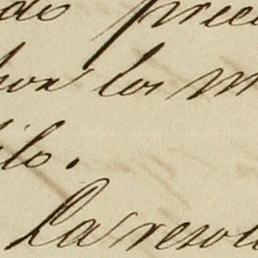 do prece
por los m
ilo.
La resolu